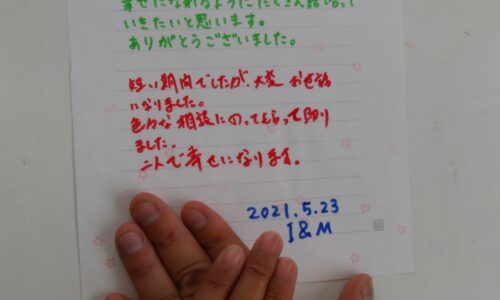 幸せになれるようにたくさん話し合って
いきたいと思います。
ありがとうございました。
短い期間でしたが、大変お世話
になりました。
色々な相談にのってもらって助かり
ました。
二人で幸せになります。
2021.5.23
I&M